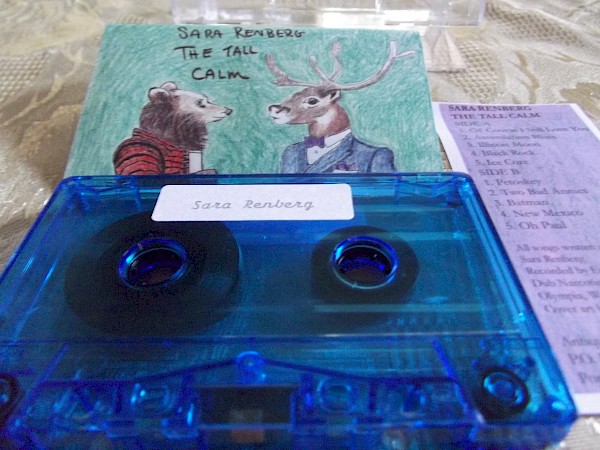 SARA RENBERG
THE TALL
CALM
Sara Renberg
SARA RENBERG
THE TALL CALM
SIDE A
1. Of Course I Still Love You
2. Assimilation Blues
3. Illinois Moon
4. Black Rock
5. Ice Core
SIDE B
1. Petoskey
2. Two Bad Annies
3. Batman
4. New Mexico
5. Oh Paul
All songs written
Sara Renberg
Recorded by
Dub Narcotic
Olympia, W
Cover art
P.O.